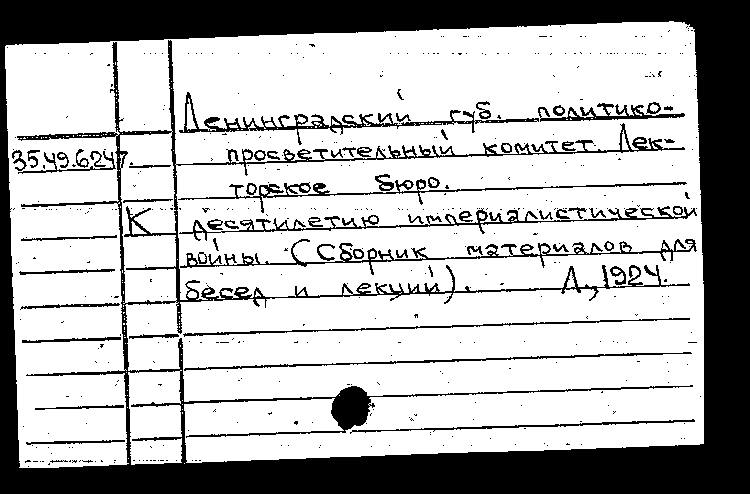 Ленинградский губ. политико-
35.49.6.247. просветительный комитет. Лек-
торское бюро.
К десятилетию империалистической
войны. (Сборник материалов для
бесед и лекций). Л., 1924.